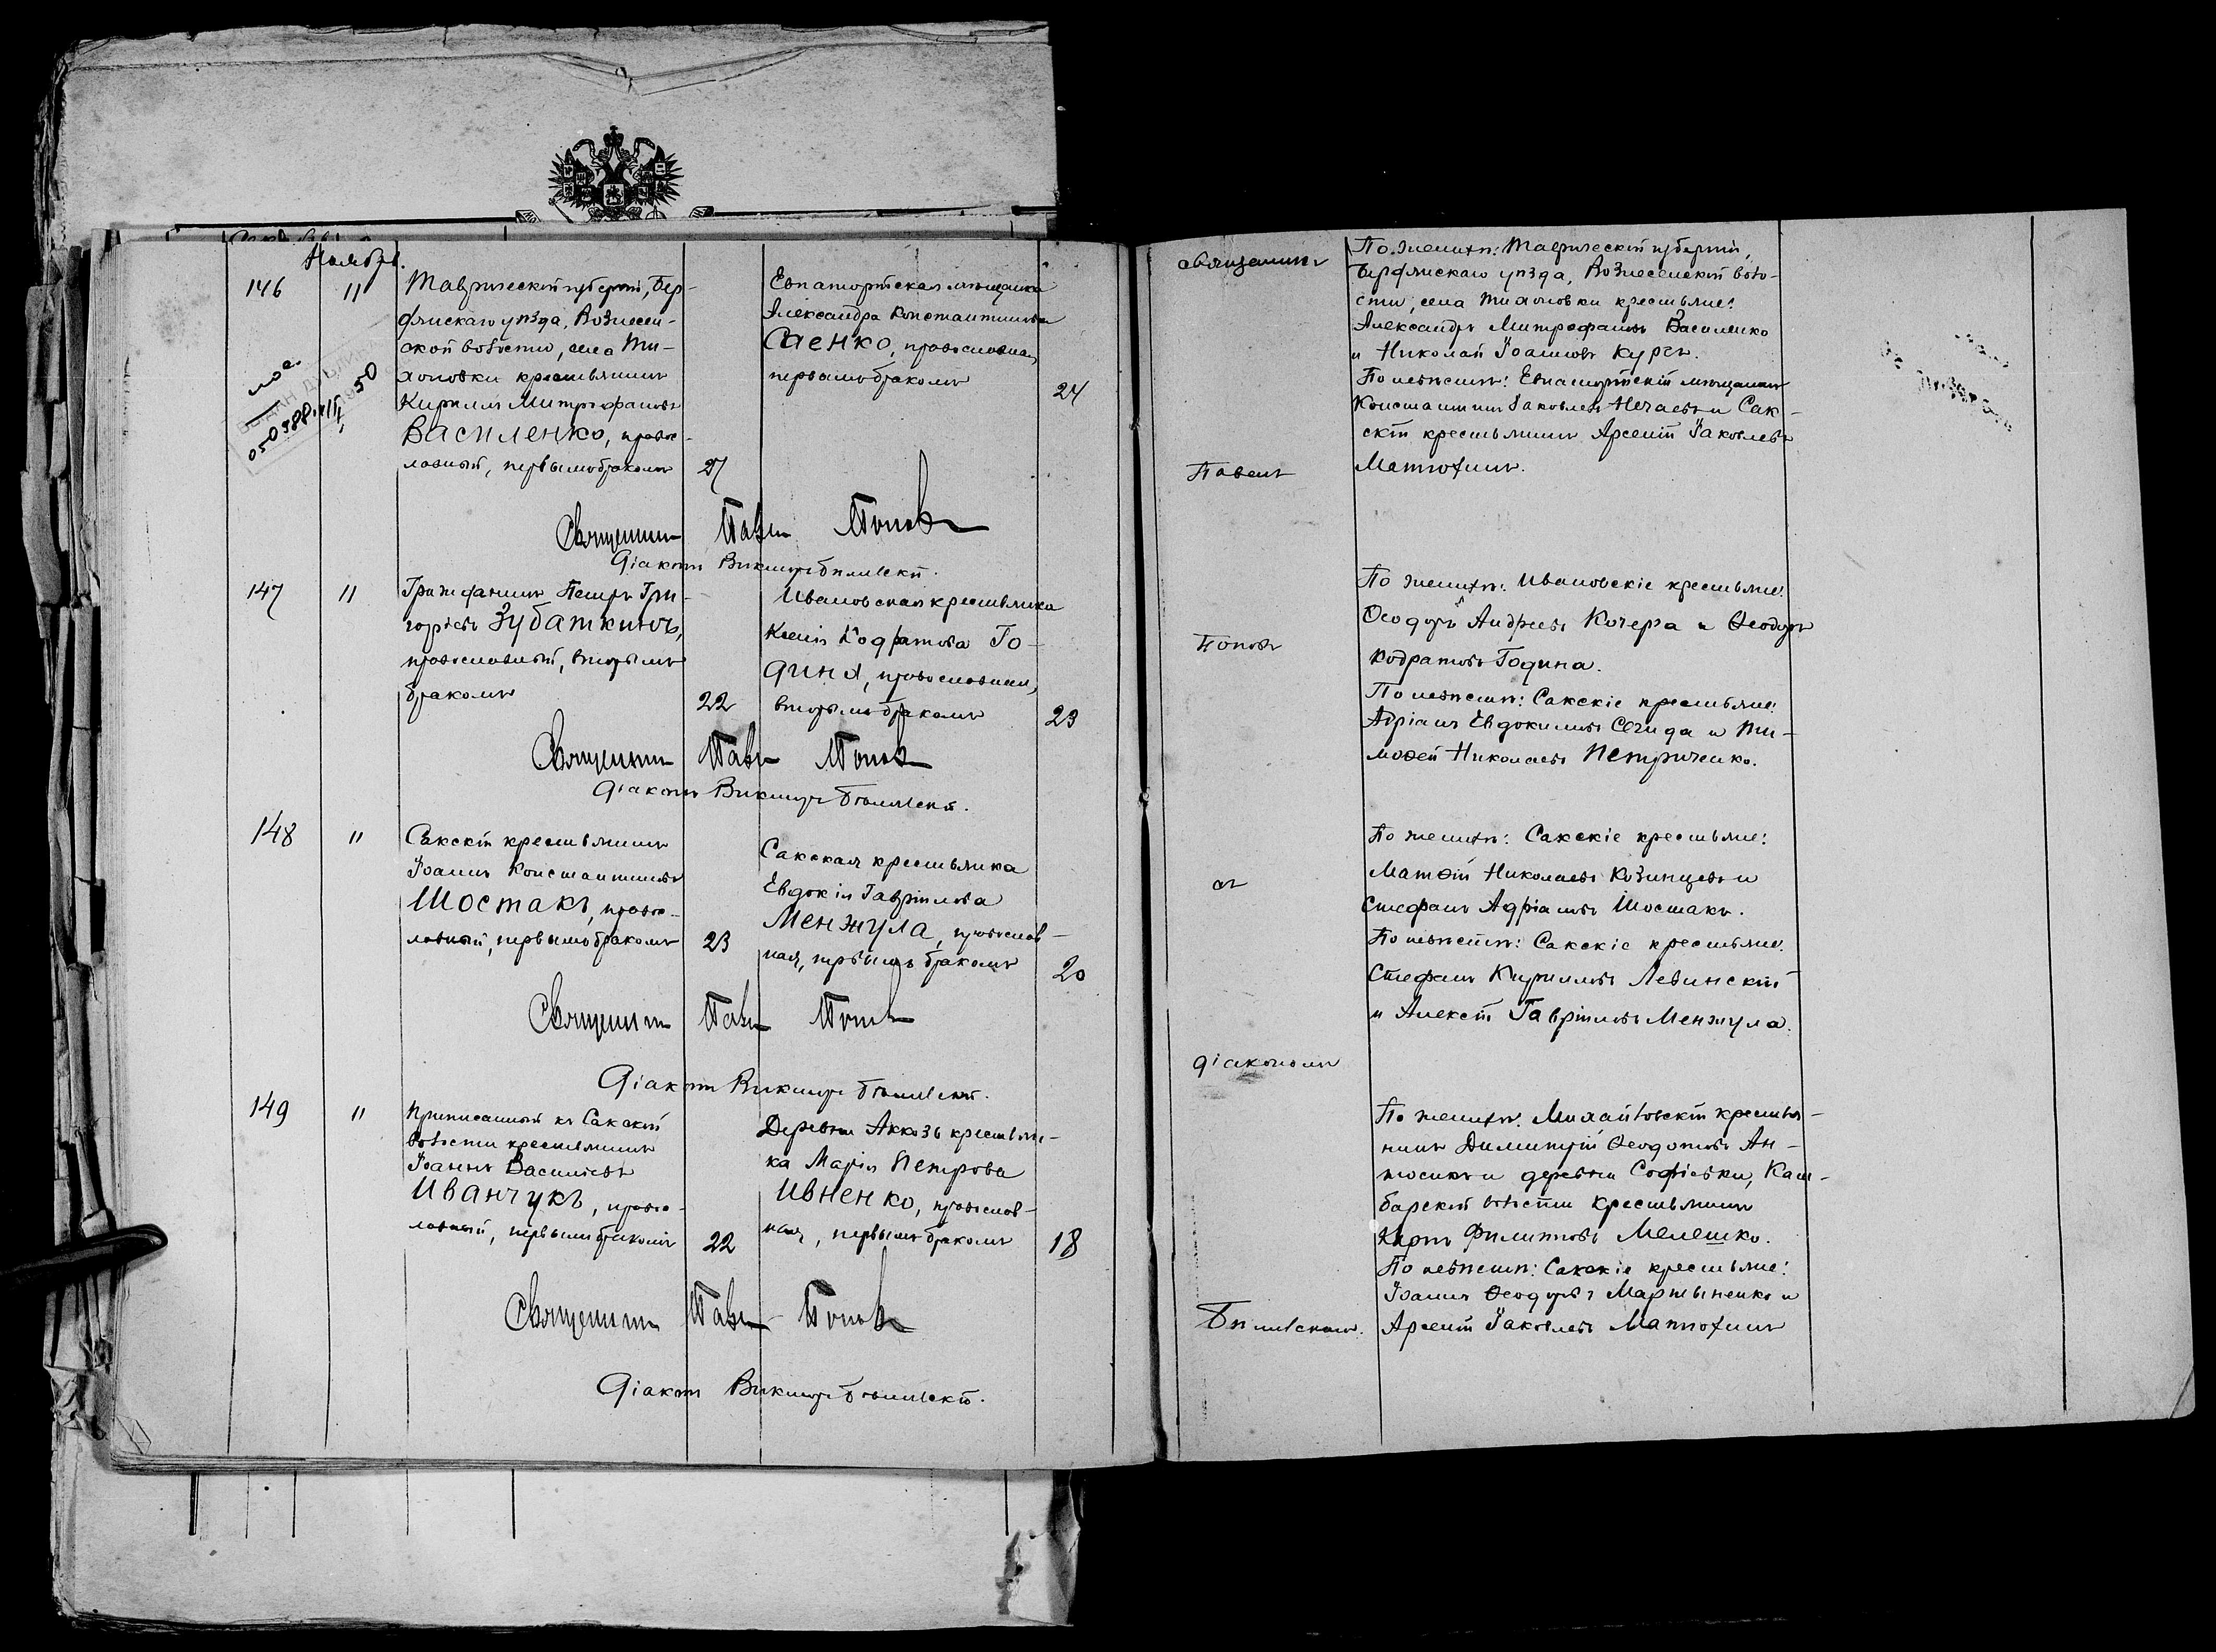 Ноябрь.
146
11
Таврической губерніи, Бер-
дянскаго уѣзда, Вознесен-
ской волости, села Ти-
хоновки крестьянинъ
Кириллъ Митрофановъ
Василенко, правос-
лавный, первымъ бракомъ
27
Евпаторійская мѣщанка
Александра Константинова
Саенко, православная,
первымъ бракомъ
24
Священникъ Павелъ Поповъ
Діаконъ Викторъ Бѣливскій.
147
11
Гражданинъ Петръ Гри-
горьевъ Зубаткинъ,
православный, вторымъ
бракомъ
22
Ивановская крестьянка
Ксенія Кодратова Го-
дина, православная,
вторымъ бракомъ
23
Священникъ Павелъ Поповъ
Діаконъ Викторъ Бѣливскій.
148
11
Сакскій крестьянинъ
Іоаннъ Константиновъ
Шостакъ, правос-
лавный, первымъ бракомъ
23
Сакская крестьянка
Евдокія Гавріилова
Менжула, православ-
ная, первымъ бракомъ
20
Священникъ Павелъ Поповъ
Діаконъ Викторъ Бѣливскій.
149
11
Приписанный къ Сакской
волости крестьянинъ
Іоаннъ Васильевъ
Иванчукъ, правос-
лавный, первымъ бракомъ
22
Деревни Аккозъ крестьян-
ка Марія Петрова
Ивненко, православ-
ная, первымъ бракомъ
18
Священникъ Павелъ Поповъ
Діаконъ Викторъ Бѣливскій.
священникъ
Павелъ
Поповъ
съ
діакономъ
Бѣливскимъ.
По женихѣ: Таврической губерніи,
Бердянскаго уѣзда, Вознесенской воло-
сти, села Тихоновки крестьяне:
Александръ Митрофановъ Василенко
и Николай Іоанновъ Курсъ.
По невѣстѣ: Евпаторійскій мѣщанинъ
Константинъ Іаковлевъ Нечаевъ и Сак-
скій крестьянинъ Арсеній Іаковлевъ
Матюхинъ.
По женихѣ: Ивановскіе крестьяне:
Ѳеодоръ Андреевъ Кочерга и Ѳеодоръ
Кодратовъ Година.
По невѣстѣ: Сакскіе крестьяне:
Адріанъ Евдокимовъ Сечида и Ти-
моѳей Николаевъ Петриченко.
По женихѣ: Сакскіе крестьяне:
Матѳій Николаевъ Козинцевъ и
Стефанъ Адріановъ Шостакъ.
По невѣстѣ: Сакскіе крестьяне:
Стефанъ Кирилловъ Левинскій
и Алексій Гавріиловъ Менжула.
По женихѣ: Михайловскій крестья-
нинъ Димитрій Ѳеодотовъ Ан-
тосикъ и деревни Софіевки, Кам-
барской волости крестьянинъ
Карпъ Филипповъ Мелешко.
По невѣстѣ: Сакскіе крестьяне:
Іоаннъ Ѳеодоровъ Мартыненко и
Арсеній Іаковлевъ Матюхинъ